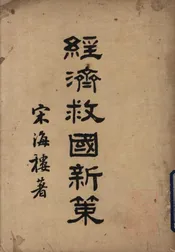 經濟救國新策
宋海樓著